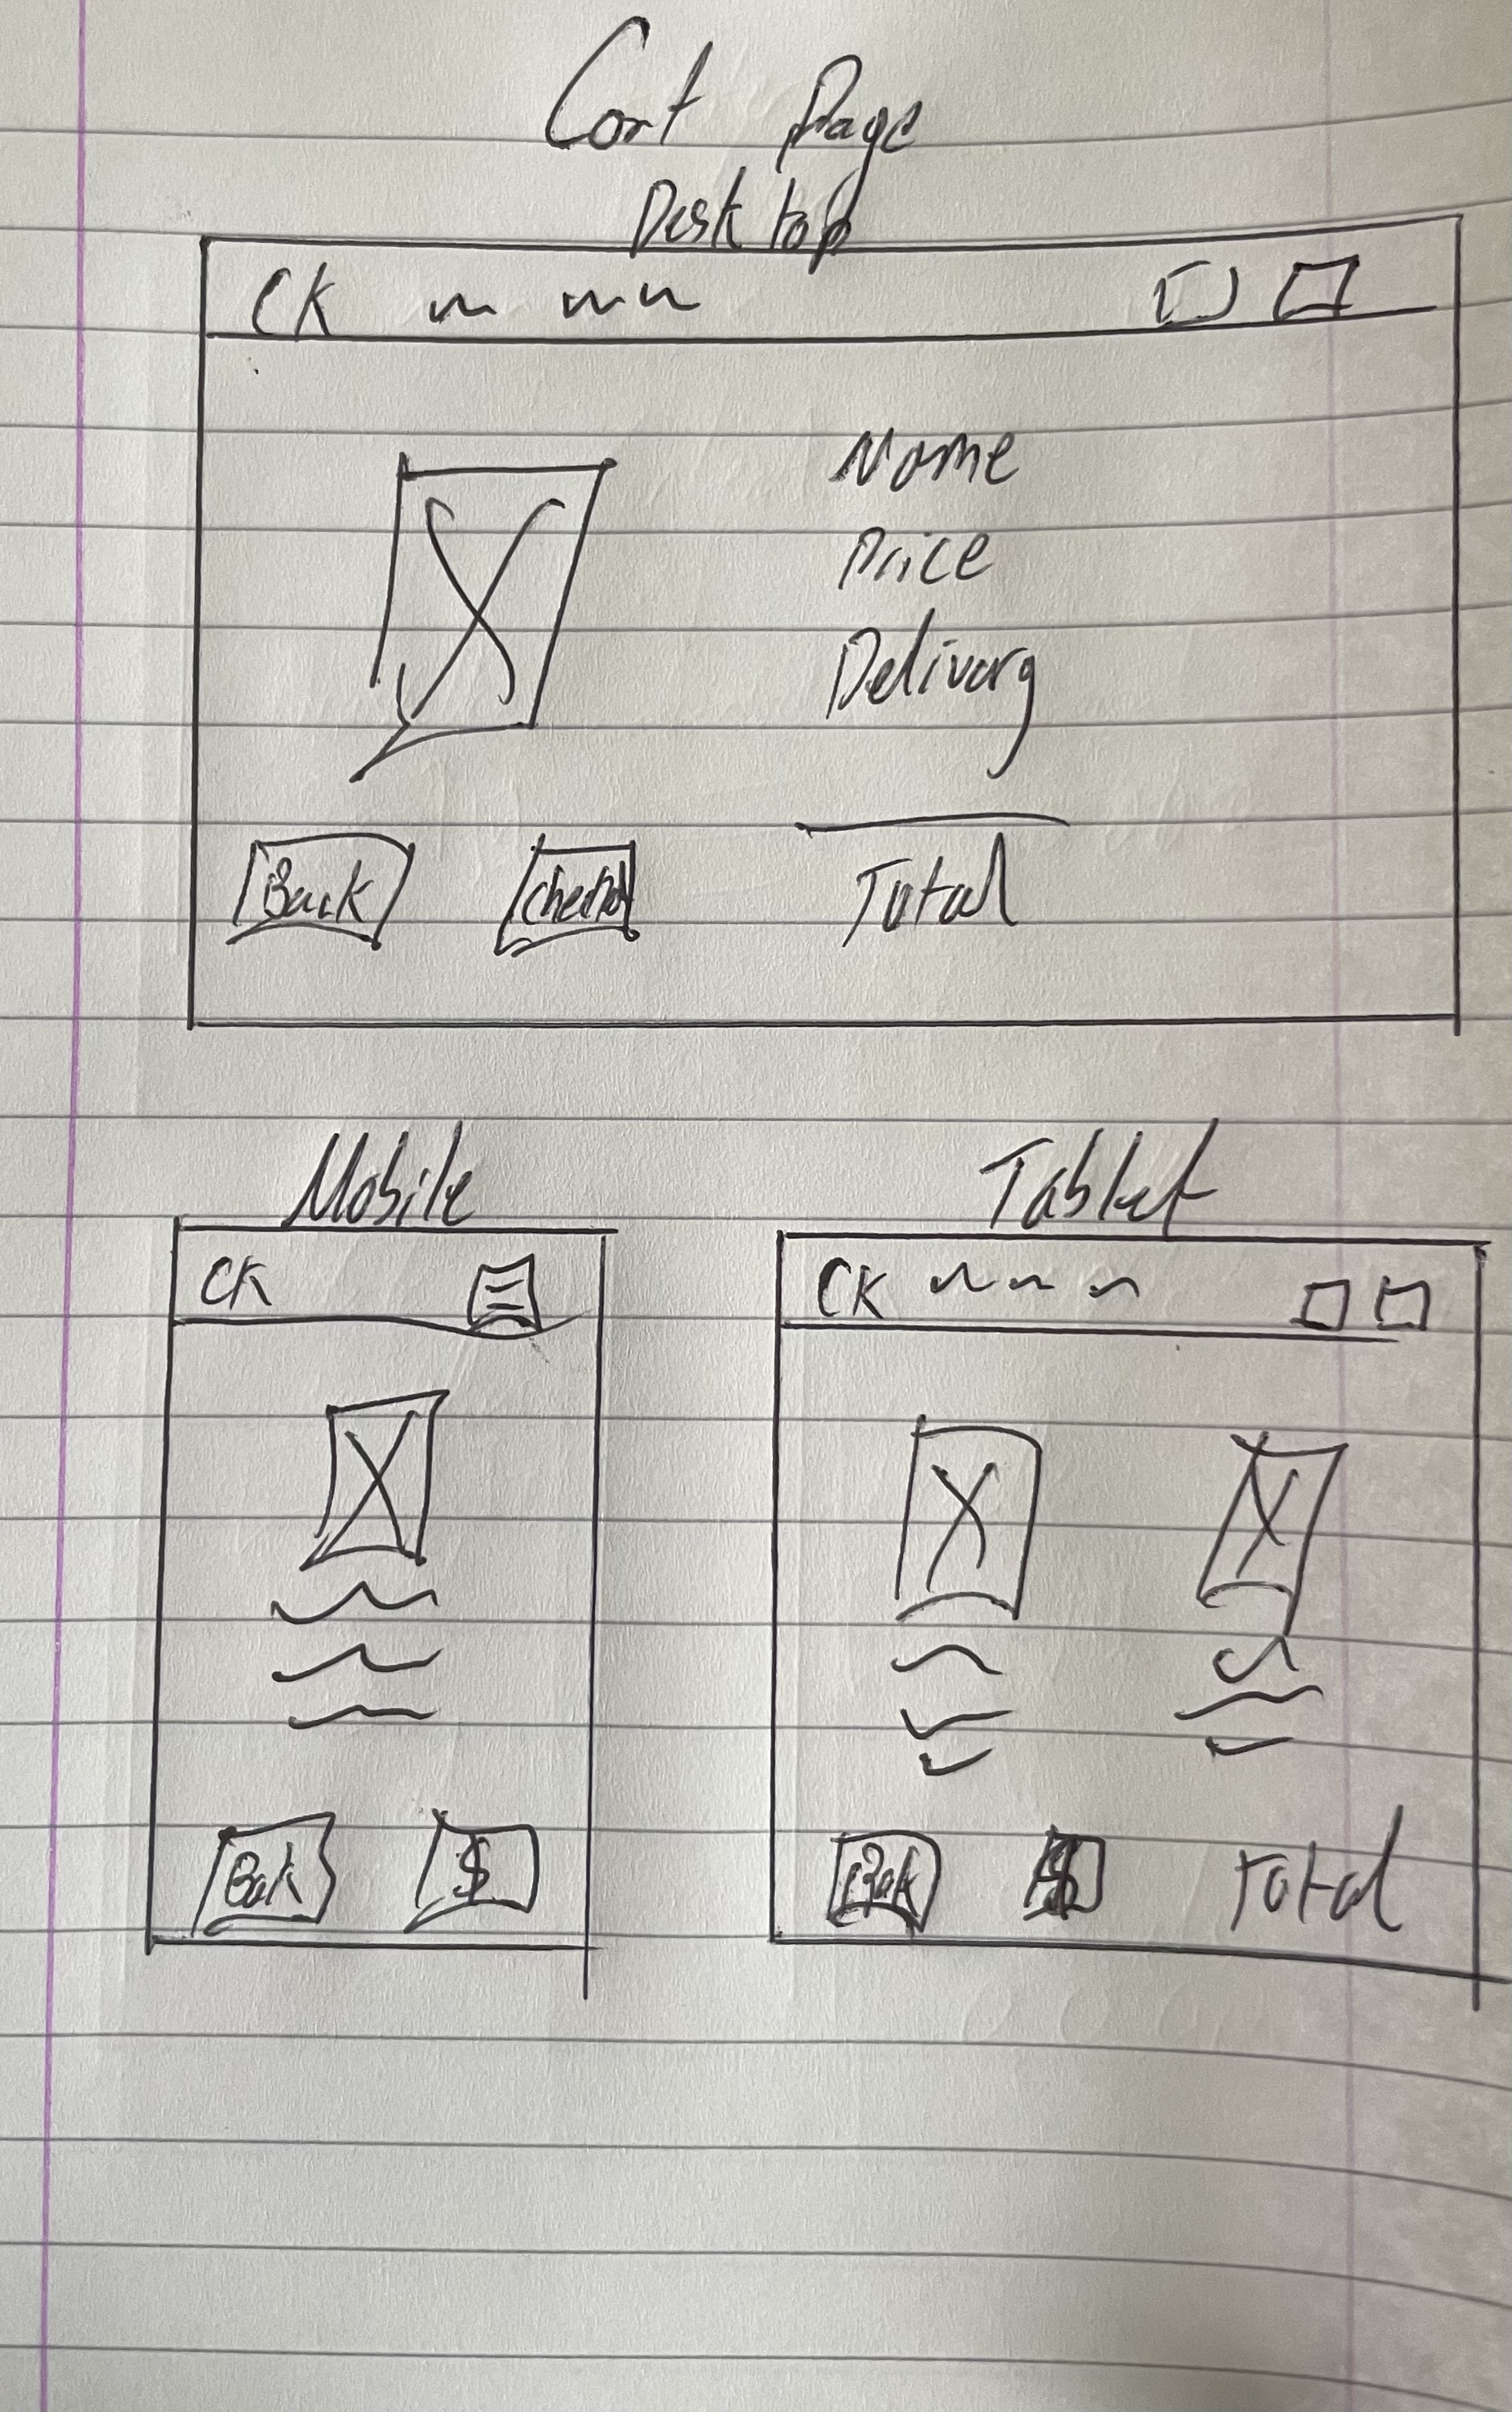 Cart Page
Desktop
CK
Name
Price
Delivery
Back
Total
Mobile
CK
Back $
Tablet
CK
Back $ Total